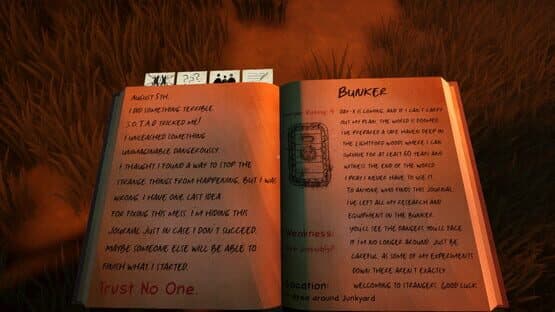 August 5th.
I did something terrible.
S.O.T.A.D tricked me!
I unleached something
unimaginable dangerously.
I thaught I found a way to stop the
strange things from happening, but I was
wrong. I have one last idea
for fixing this mess. I'm hiding this
journal just in case I don't succeed.
Maybe someone else will be able to
finish what I started.
Trust No One.
Bunker
Day-X is coming, and if I can't carry
out my plan, the world is doomed.
I've prepared a safe haven deep in
the Lightford woods where I can
survive for at least 60 years and
witness the end of the world.
I pray I never have to use it.
To anyone who finds this journal
I've left all my research and
equipment in the bunker.
You'll see the dangers you'll face
if I'm no longer around. Just be
careful, as some of my experiments
down there aren't exactly
welcoming to strangers. Good luck.
Weakness:
Location:
around Junkyard